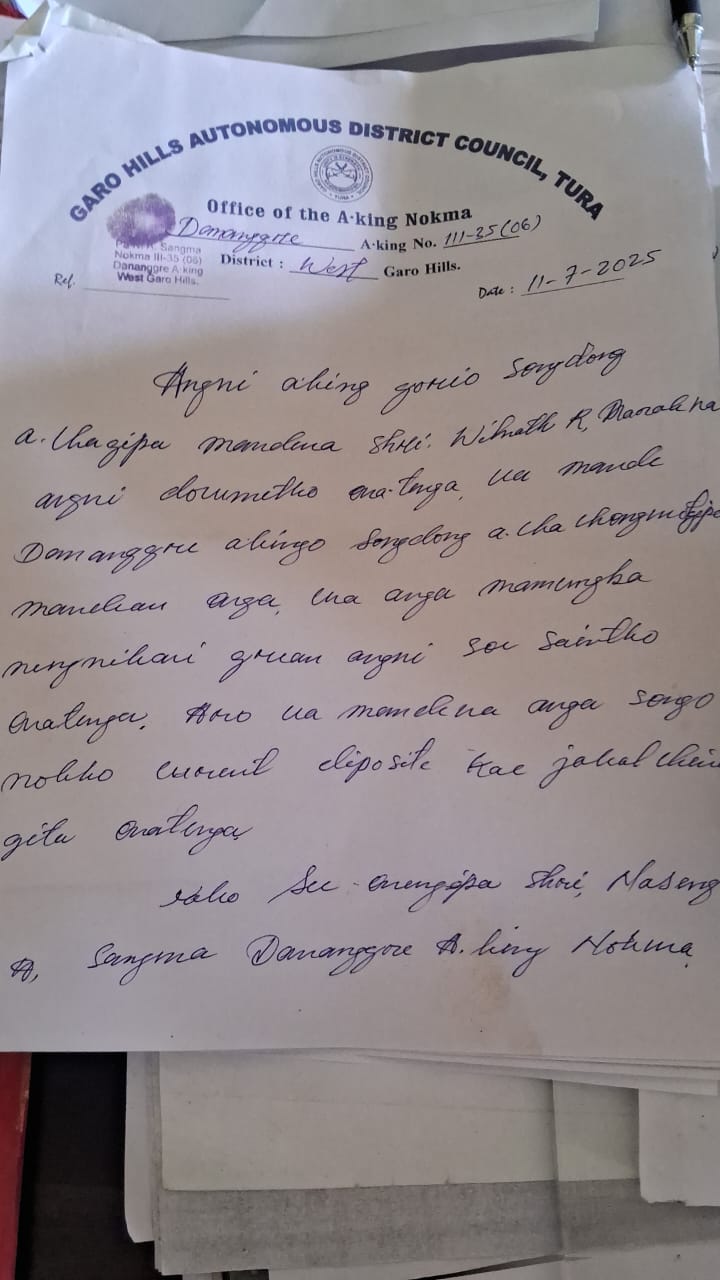 GARO HILLS AUTONOMOUS DISTRICT COUNCIL, TURA
Office of the A·king Nokma
Dananggre A·king No. 111-35 (06)
Sangma
Nokma III-35 (06)
Dananggre A·king
West Garo Hills.
District : West Garo Hills.
Ref.
Date : 11-7-2025
Angni a'king gonio Songdong
a.chagipa mandena Shri. R, Marak na
angni documetko ona.tenga, ua mande
Dananggre akingo Songdong a.cha
mandean anga, ua anga mamungka
angni soi saintko
onatenga. Aro ua mandena anga songo
nokko current diposite kae jakalchin
gita onatenga,
iako See-onengipa Shri, Naseng
A, Sangma Dananggre A.king Nokma,